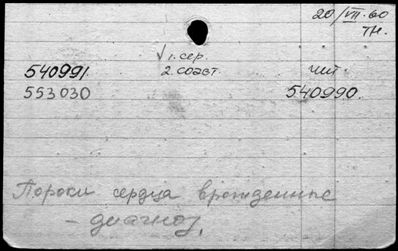 20/VII-60
тн.
√ 1. сер.
540991 2. сост. чит.
553030 540990.
Пороки сердца врожденные
– диагноз.